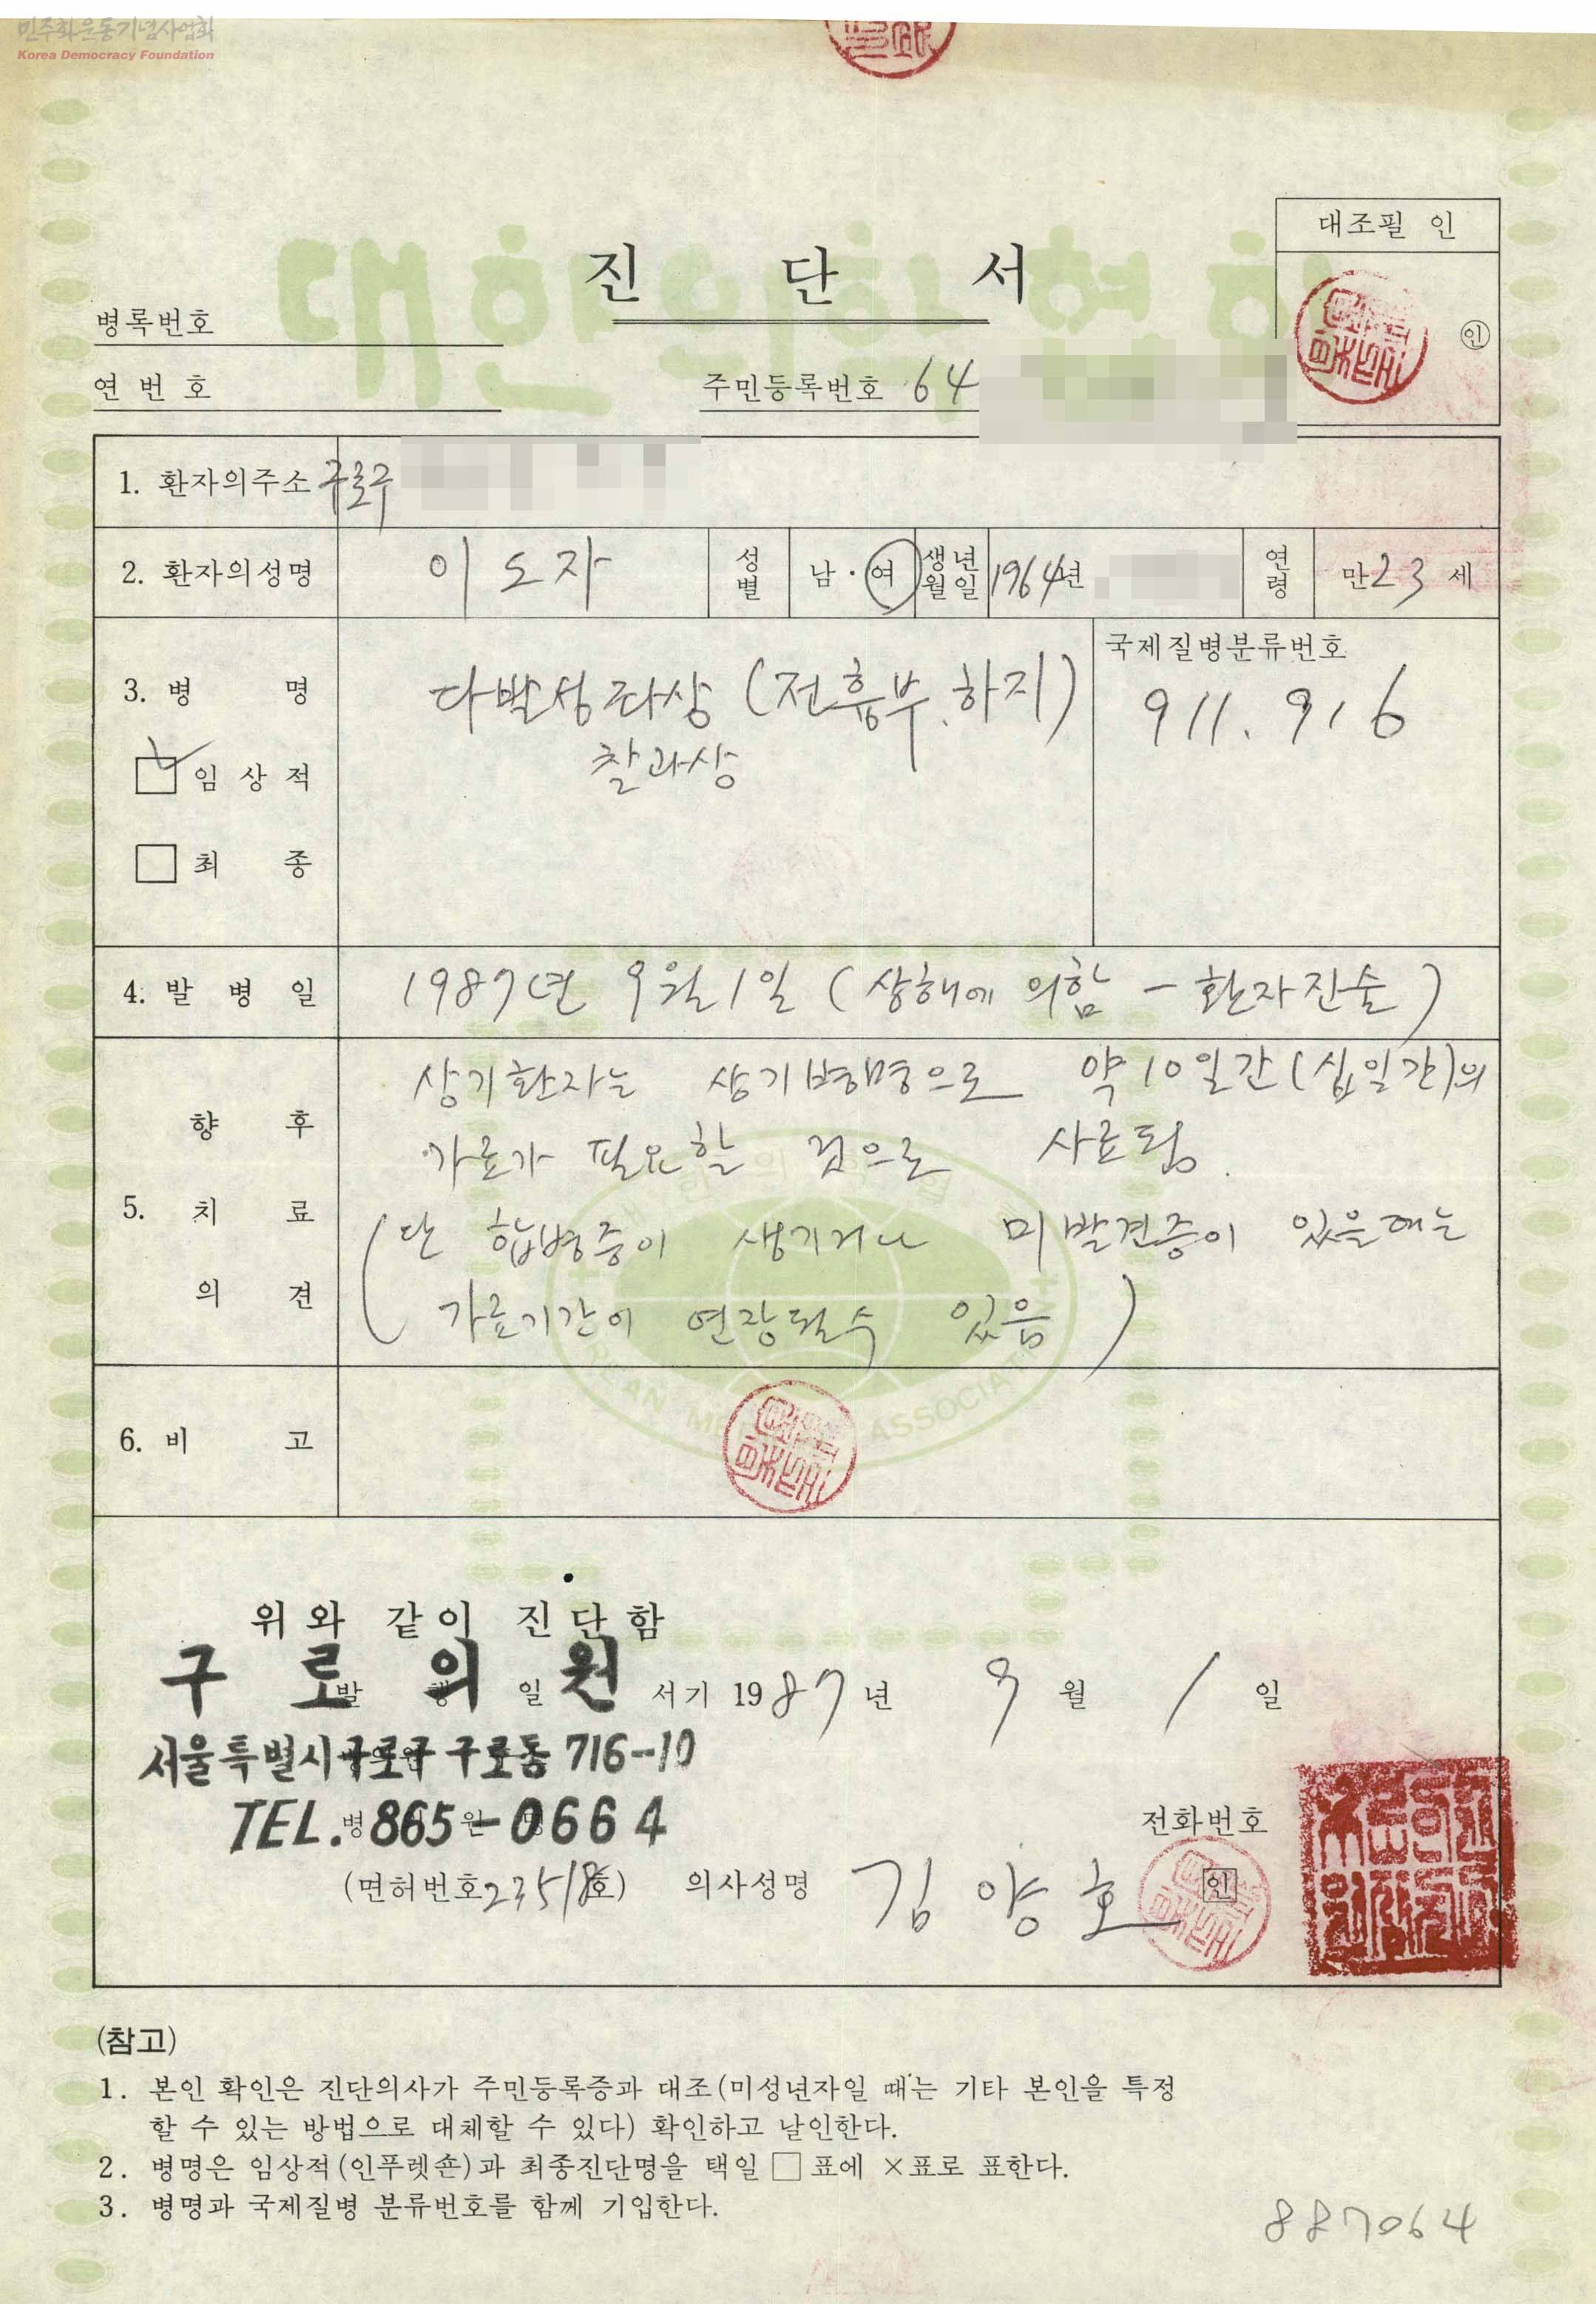 민주화운동기념사업회
Korea Democracy Foundation
대조필 인
진 단 서
병록번호
인
연 번 호
주민등록번호 64
1. 환자의주소 구로구
2. 환자의성명 이도자 성별 남 · 여 생년월일 1964년 연령 만 23 세
3. 병 명 다발성좌상 (전흉부.하지) 국제질병분류번호
찰과상 911. 916
임 상 적
최 종
4. 발 병 일 1987년 9월 1일 (상해에 의함 - 환자진술)
5. 향 후 치 료 의 견
상기환자는 상기병명으로 약 10일간(십일간)의
가료가 필요할 것으로 사료됨.
(단 합병증이 생기거나 미발견증이 있을때는
가료기간이 연장될수 있음)
6. 비 고
위와 같이 진단함
구 로 의 원
발 행 일 서기 1987년 9월 1일
서울특별시 구로구 구로동 716-10
TEL. 865-0664
전화번호
(면허번호 23518호) 의사성명 김양호 인
(참고)
1. 본인 확인은 진단의사가 주민등록증과 대조(미성년자일 때는 기타 본인을 특정
할 수 있는 방법으로 대체할 수 있다) 확인하고 날인한다.
2. 병명은 임상적(인푸렛숀)과 최종진단명을 택일 □ 표에 ×표로 표한다.
3. 병명과 국제질병 분류번호를 함께 기입한다.
887064